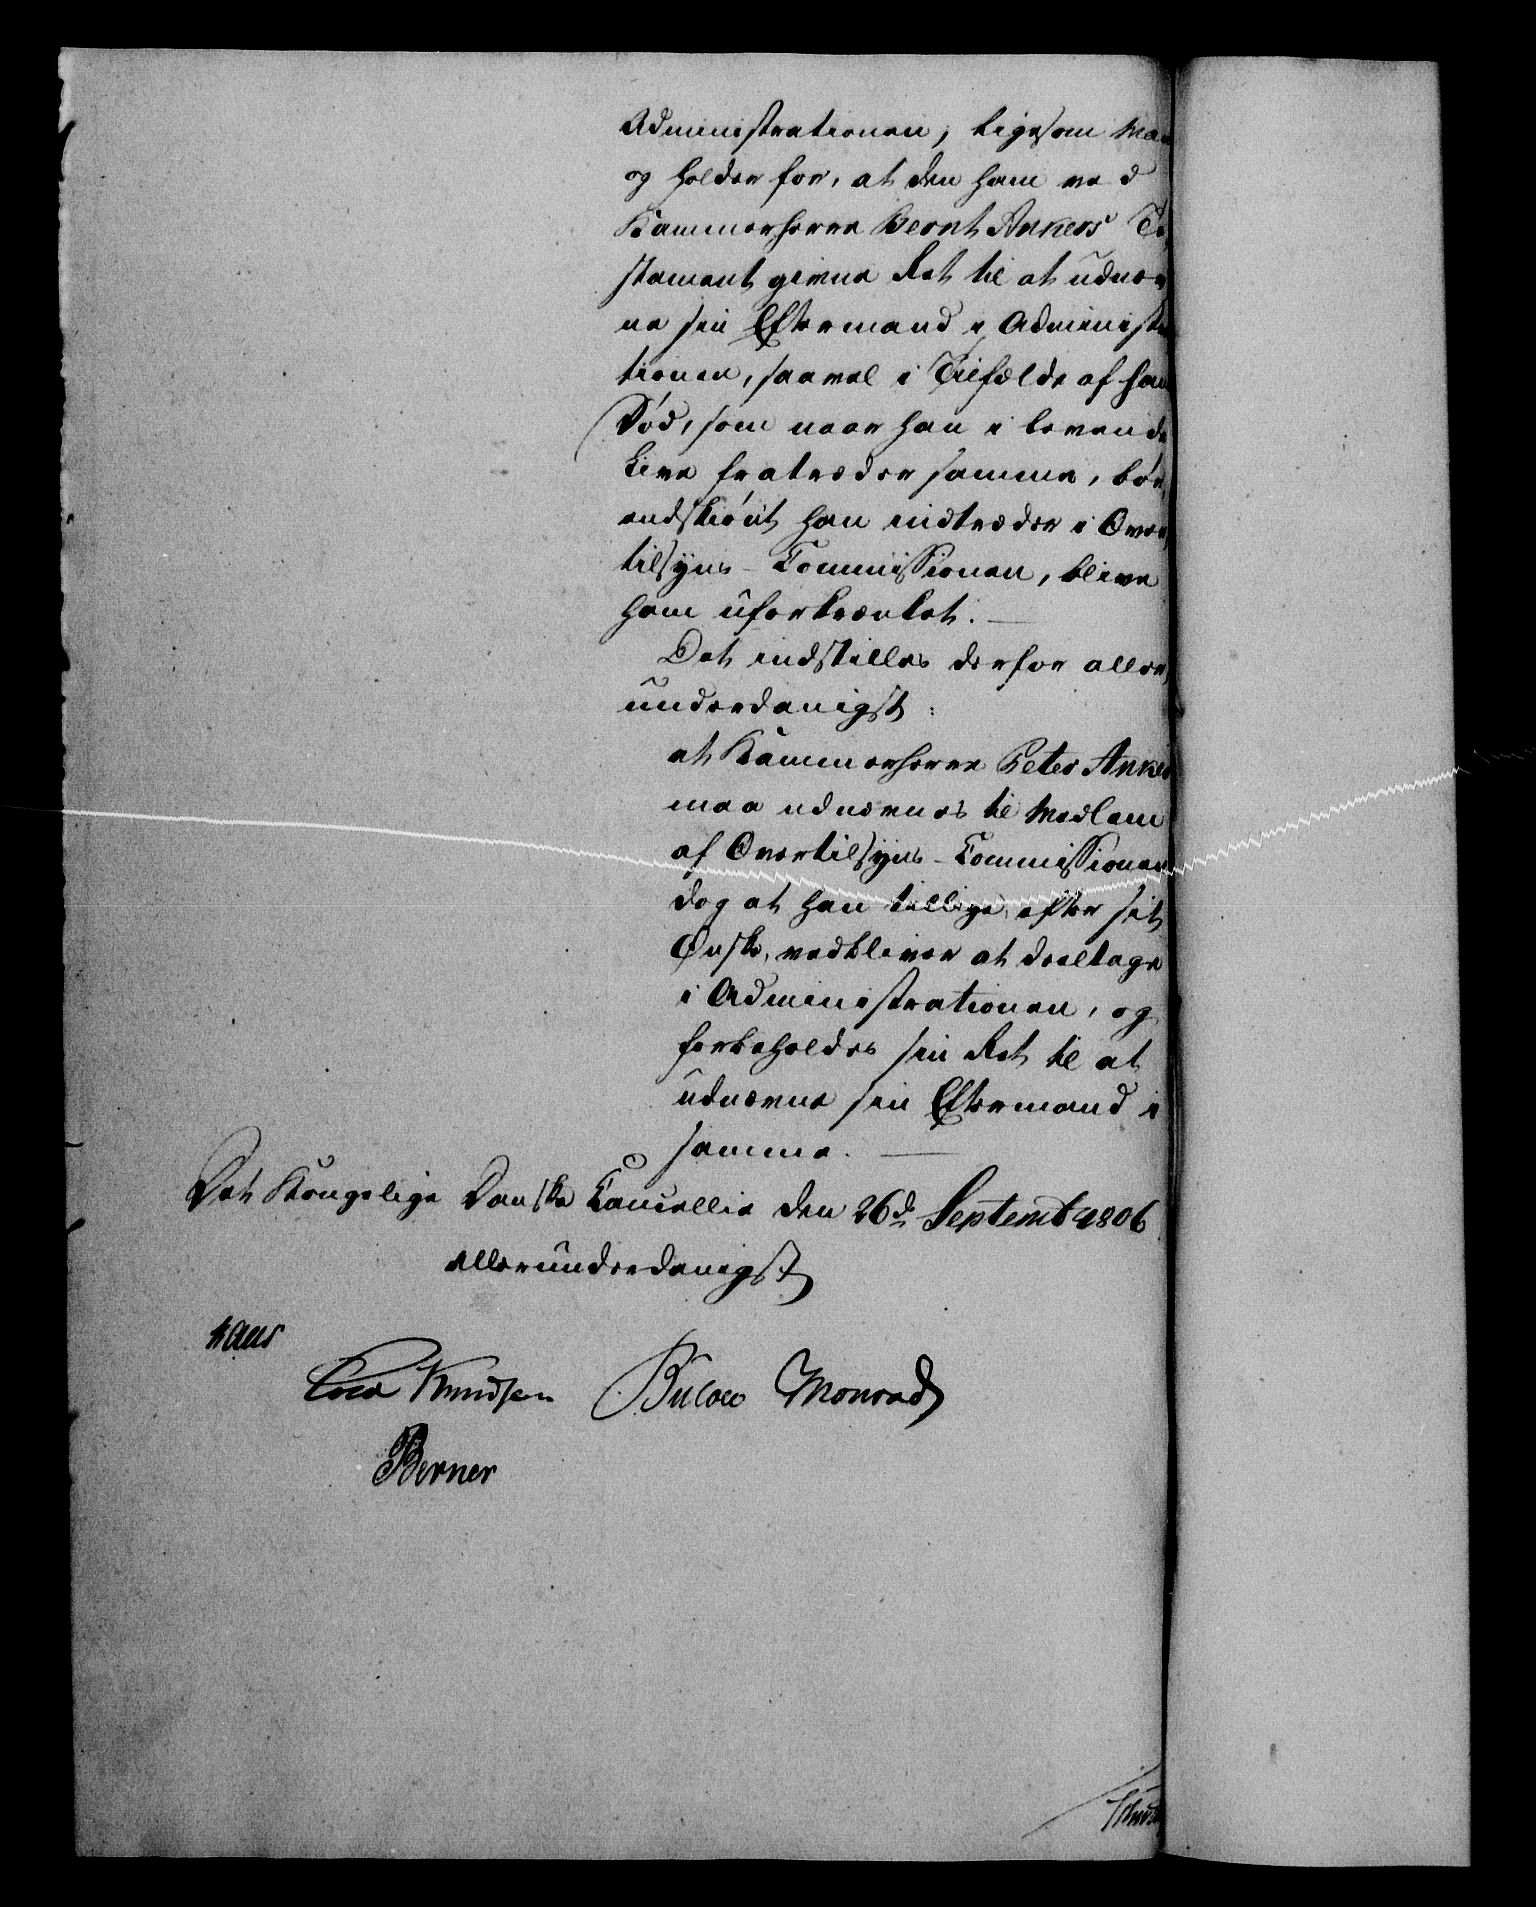 Administrationen, ligesom Man
og holder for, at den ham ved
Kammerherre Bernt Ankers Te,
stament givne Ret til at udnæv
ne sin Eftermand i Administra
tionen, saavel i Tilfælde af hans
Død, som naar han i levende
Live fratræder samme, bør,
endskiønt han indtræder i Over,
tilsyns-Commissionen, blive
ham uforkrænket. —
Det indstilles derfor aller,
underdanigst:
at Kammerherre Peter Anker
maa udnævnes til Medlem
af Overtilsyns-Commissionen
dog at han tillige, efter sit
Ønske, vedbliver at deeltage
i Administrationen, og
forbeholdes sin Ret til at
udnævne sin Eftermand i
samme. —
Det Kongelige Danske Cancellie den 26de Septemb 1806
allerunderdanigst
Kaas
Cold Knudsen Bülow Monrad
Berner